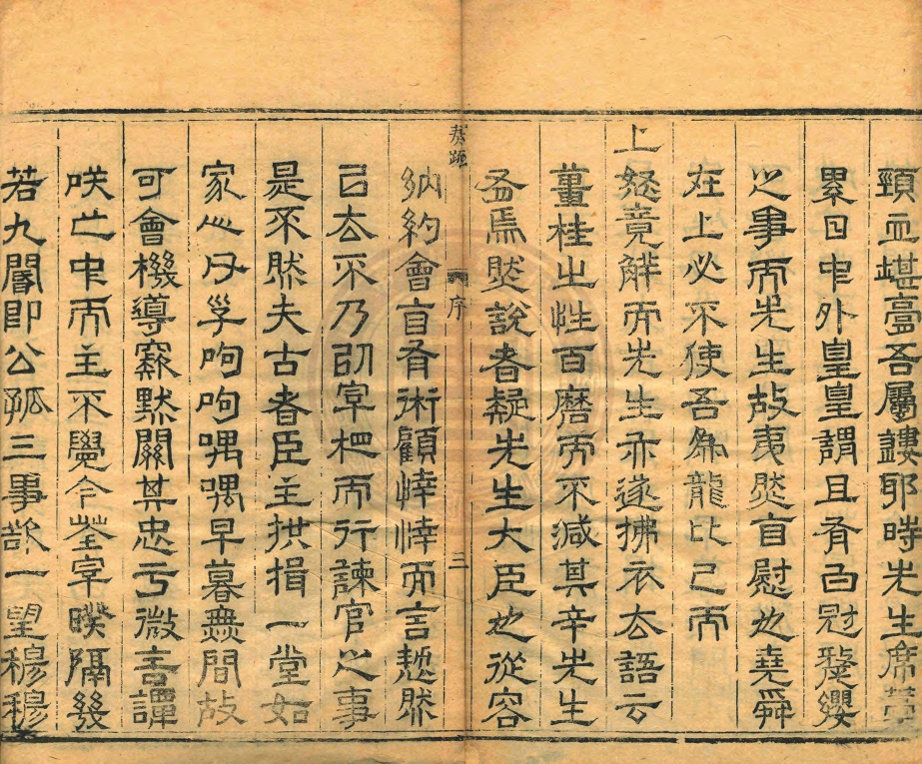 頸血堪膏吾屬鏤耶時先生席藁
累日中外皇皇謂且有白冠氂纓
之事而先生故夷然自慰也堯舜
在上必不使吾為龍比已而
上怒竟解而先生亦遂拂衣去語云
薑桂之性百磨而不減其辛先生
焉然說者疑先生大臣也從容
奏疏 序 三
納約會自有術顧悻悻而言恝然
已去不乃宰相而行諫官之事
是不然夫古者臣主拱揖一堂如
家人父子呴呴喁喁早暮無間故
可會機導窾默關其忠于微言譚
笑之中而主不覺今荃宰暌隔幾
若九閽即公孤三事欲一望穆穆